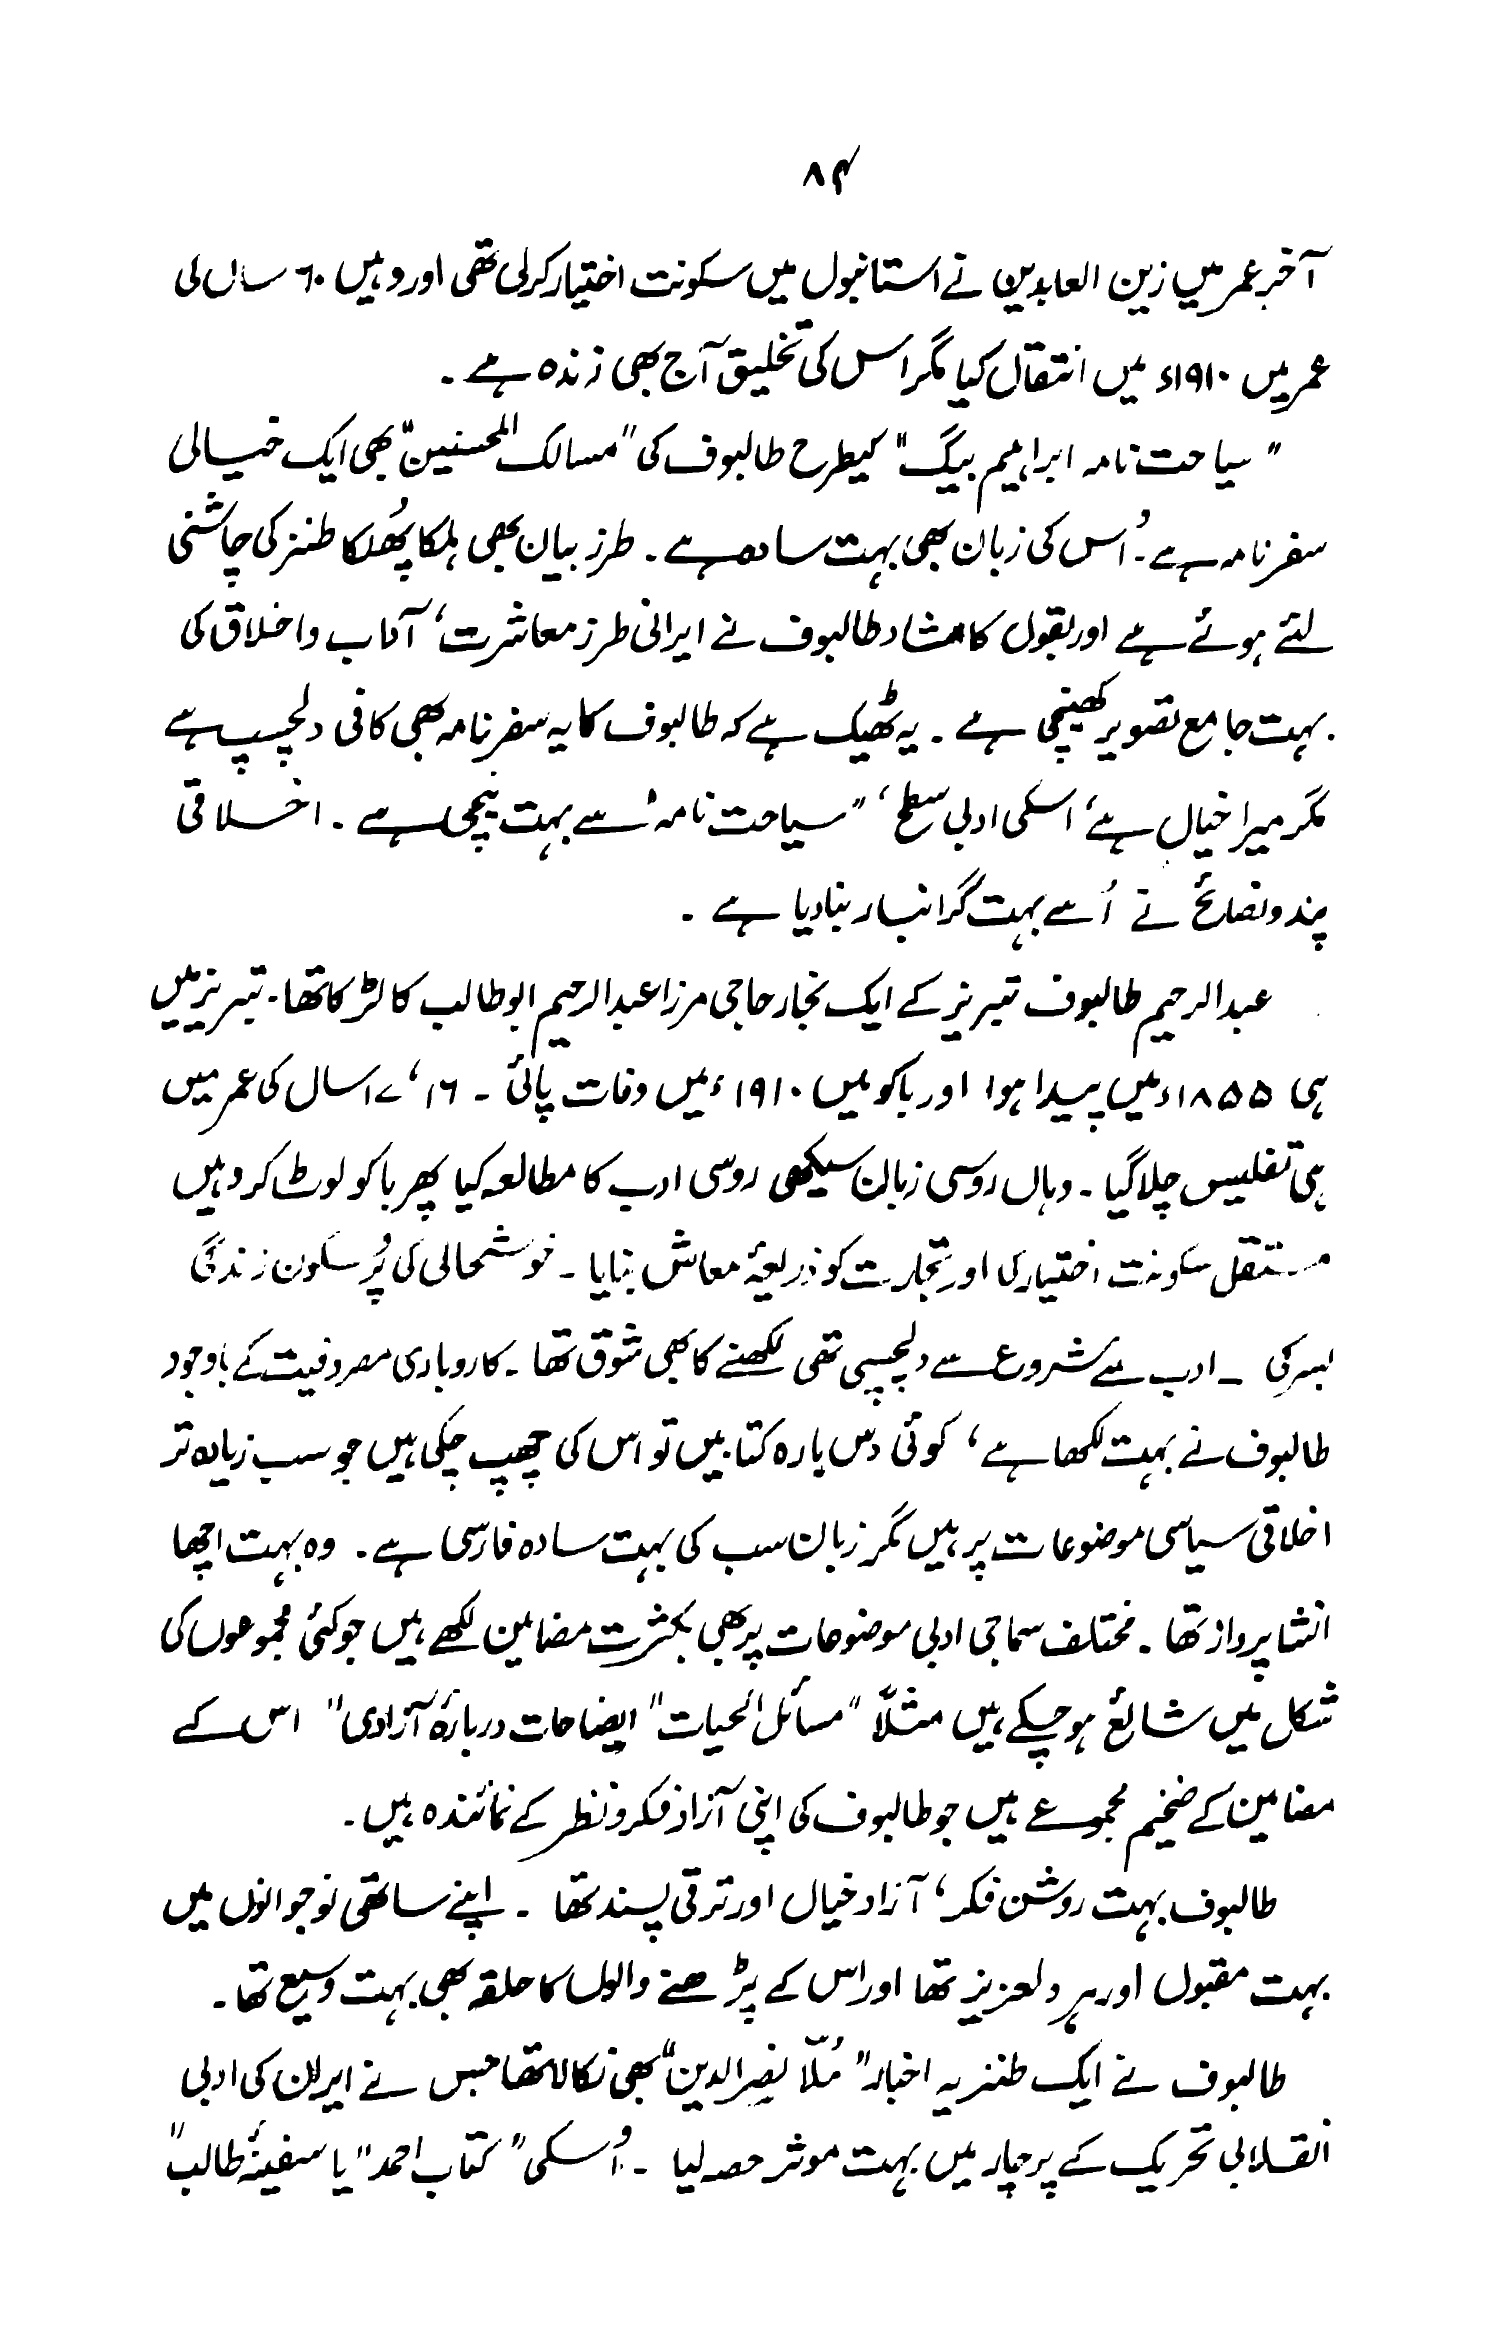 ۸۴
آخر عمر میں زین العابدین نے استانبول میں سکونت اختیار کرلی تھی اور وہیں ۶۰ سال کی
عمر میں ۱۹۱۰ء میں انتقال کیا مگر اس کی تخلیق آج بھی زندہ ہے ۔
"سیاحت نامہ ابراہیم بیگ" کیطرح طالبوف کی "مسالک المحسنین" بھی ایک خیالی
سفر نامہ ہے ۔ اُس کی زبان بھی بہت سادہ ہے ۔ طرز بیان بھی ہلکا پُھلکا طنز کی چاشنی
لئے ہوئے ہے اور بقول کامشاد طالبوف نے ایرانی طرز معاشرت، آداب و اخلاق کی
بہت جامع تصویر کھینچی ہے ۔ یہ ٹھیک ہے کہ طالبوف کا یہ سفر نامہ بھی کافی دلچسپ ہے
مگر میرا خیال ہے، اسکی ادبی سطح، "سیاحت نامہ" سے بہت نیچی ہے ۔ اخلاقی
پند و نصائح نے اُسے بہت گرانبار بنا دیا ہے ۔
عبدالرحیم طالبوف تبریز کے ایک نجار حاجی مرزا عبدالرحیم ابوطالب کا لڑکا تھا ۔ تبریز میں
ہی ۱۸۵۵ء میں پیدا ہوا اور باکو میں ۱۹۱۰ء میں وفات پائی ۔ ۱۶، ۱۷ سال کی عمر میں
ہی تفلیس چلا گیا ۔ وہاں روسی زبان سیکھی روسی ادب کا مطالعہ کیا پھر باکو لوٹ کر وہیں
مستقل سکونت اختیار کی اور تجارت کو ذریعۂ معاش بنایا ۔ خوشحالی کی پُرسکون زندگی
بسر کی ۔ ادب سے شروع سے دلچسپی تھی لکھنے کا بھی شوق تھا ۔ کاروباری مصروفیت کے باوجود
طالبوف نے بہت لکھا ہے، کوئی دس بارہ کتابیں تو اس کی چھپ چکی ہیں جو سب زیادہ تر
اخلاقی سیاسی موضوعات پر ہیں مگر زبان سب کی بہت سادہ فارسی ہے ۔ وہ بہت اچھا
انشا پرداز تھا ۔ مختلف سماجی ادبی موضوعات پر بھی بکثرت مضامین لکھے ہیں جو کئی مجموعوں کی
شکل میں شائع ہو چکے ہیں مثلاً "مسائل الحیات" ایضاحات دربارۂ آزادی" اس کے
مضامین کے ضخیم مجموعے ہیں جو طالبوف کی اپنی آزاد فکر و نظر کے نمائندہ ہیں ۔
طالبوف بہت روشن فکر، آزاد خیال اور ترقی پسند تھا ۔ اپنے ساتھی نوجوانوں میں
بہت مقبول اور ہر دلعزیز تھا اور اس کے پڑھنے والوں کا حلقہ بھی بہت وسیع تھا ۔
طالبوف نے ایک طنزیہ اخبار "مُلّا نصیرالدین" بھی نکالا تھا جس نے ایران کی ادبی
انقلابی تحریک کے پرچار میں بہت موثر حصہ لیا ۔ اُسکی "کتاب احمد" یا سفینۂ طالب"